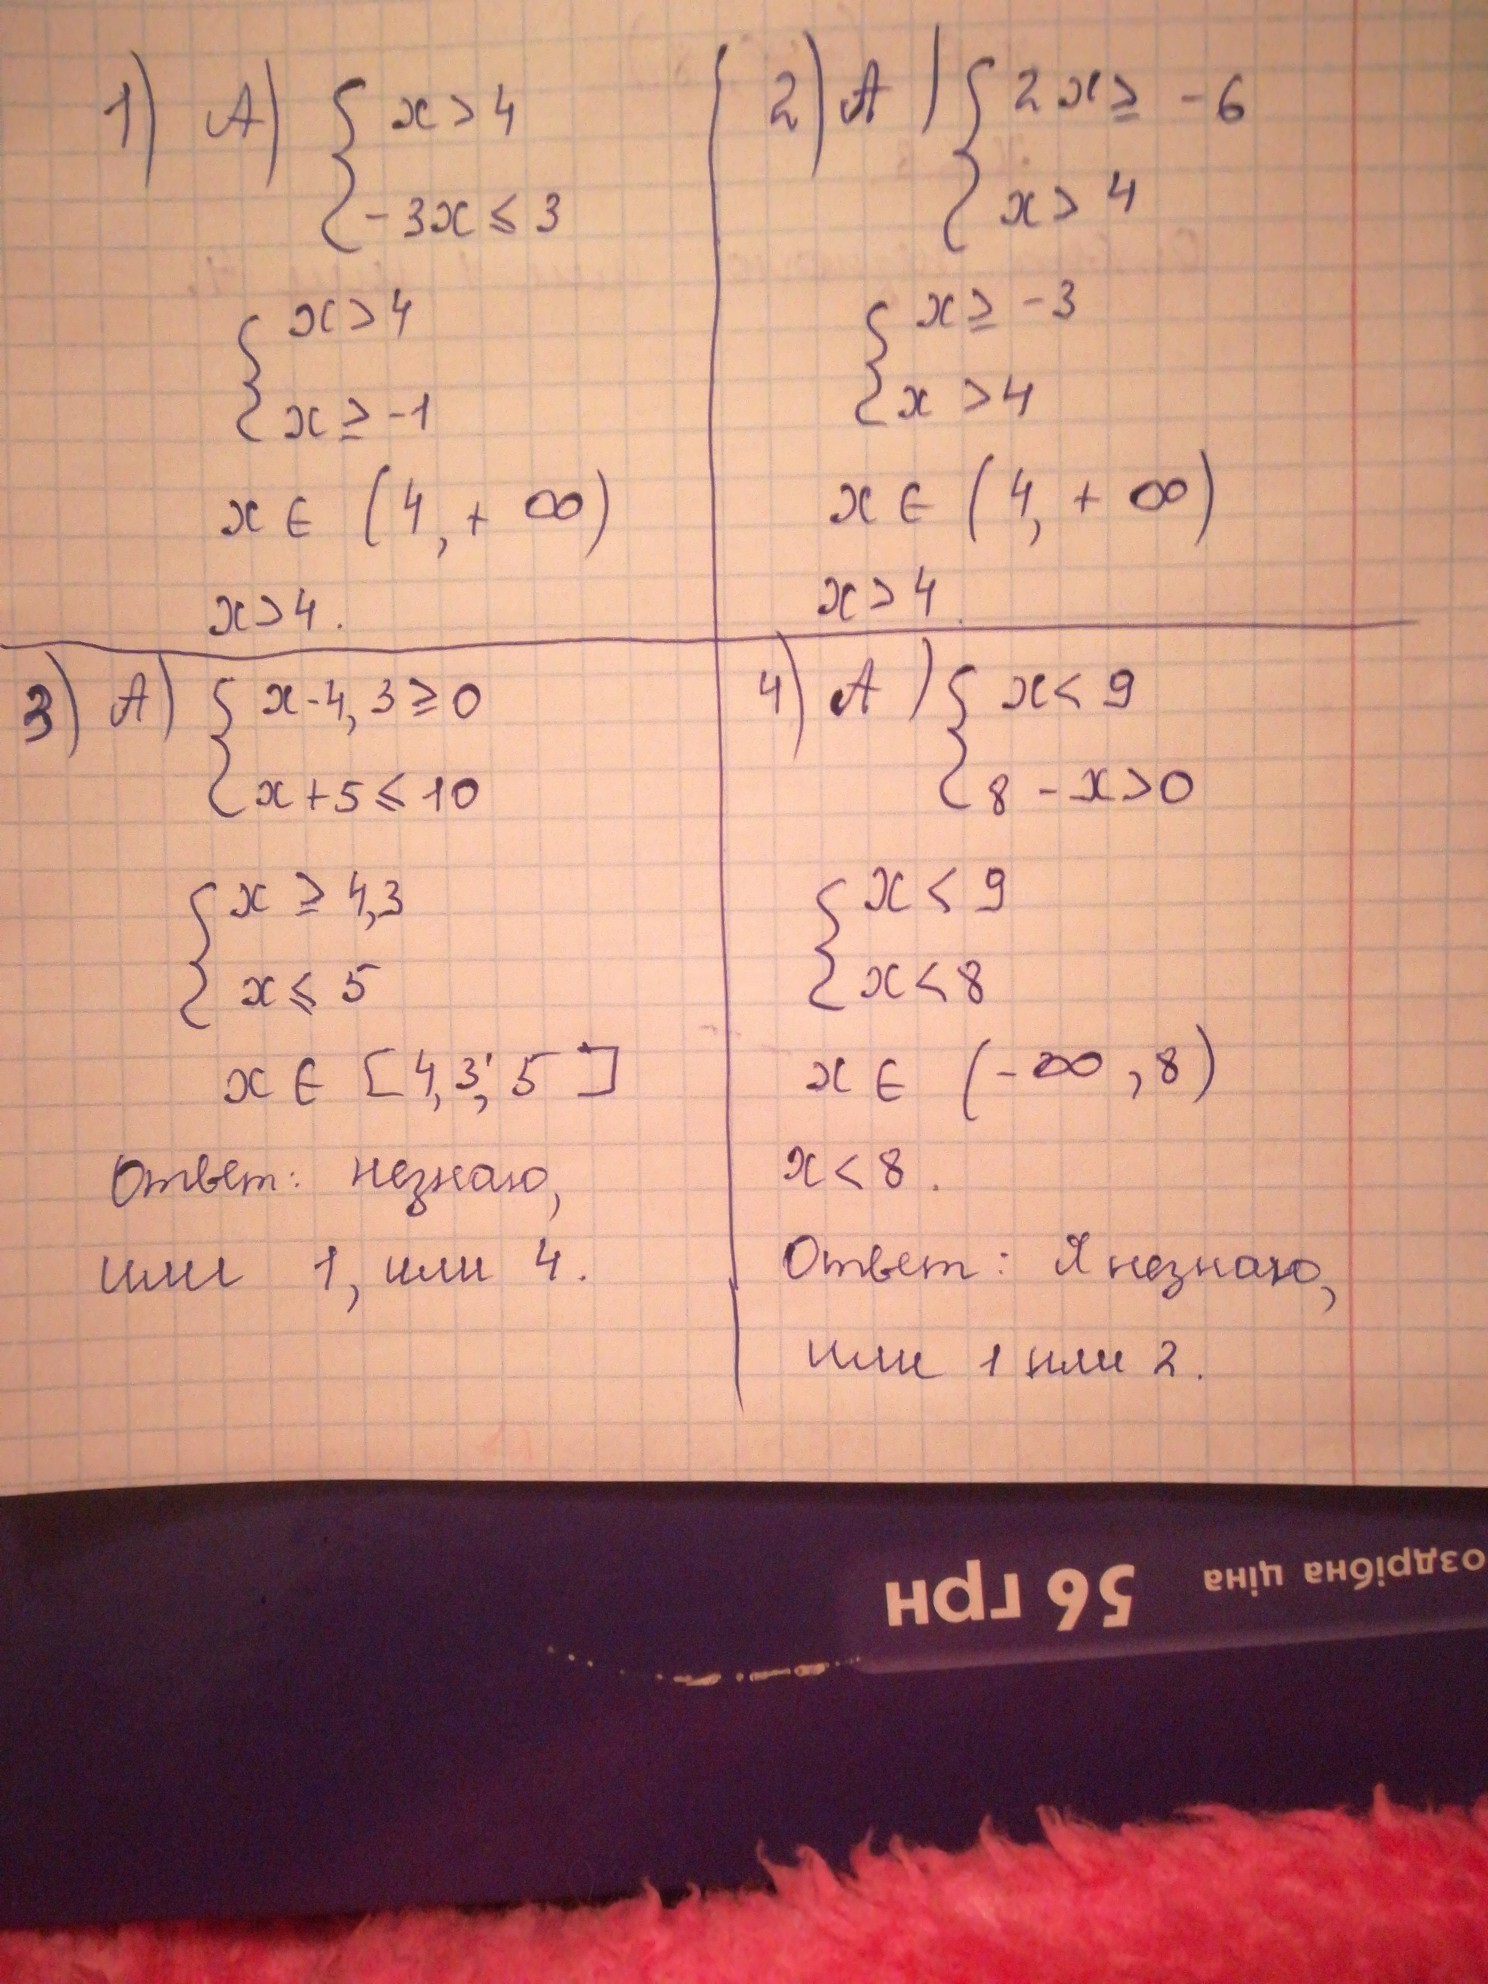 1) А) { x > 4
-3x ≤ 3
{ x > 4
x ≥ -1
x ∈ (4, + ∞)
x > 4.
2) А) { 2x ≥ -6
x > 4
{ x ≥ -3
x > 4
x ∈ (4, + ∞)
x > 4.
3) А) { x - 4,3 ≥ 0
x + 5 ≤ 10
{ x ≥ 4,3
x ≤ 5
x ∈ [4,3; 5]
Ответ: незнаю,
или 1, или 4.
4) А) { x < 9
8 - x > 0
{ x < 9
x < 8
x ∈ (-∞, 8)
x < 8.
Ответ: Я незнаю,
или 1 или 2.
оздрібна ціна 56 грн